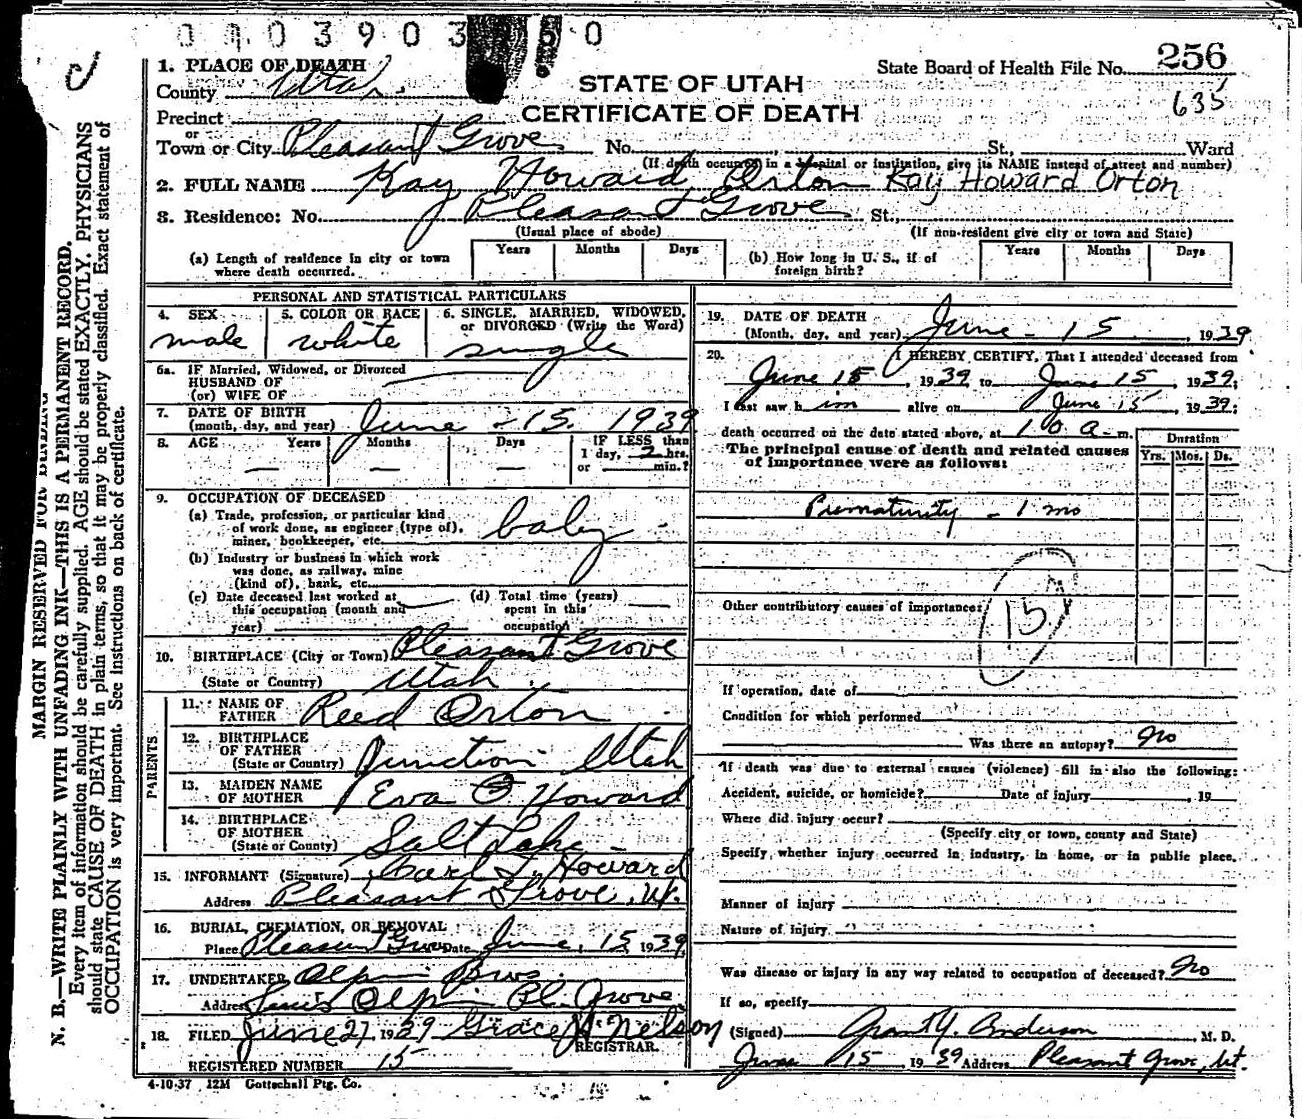 State Board of Health File No. 256
635
1. PLACE OF DEATH
County Utah.
STATE OF UTAH
CERTIFICATE OF DEATH
Precinct
or
Town or City Pleasant Grove No. , St., Ward
(If death occurred in a hospital or institution, give its NAME instead of street and number)
2. FULL NAME Kay Howard Orton Kay Howard Orton
3. Residence: No. Pleasant Grove St.,
(Usual place of abode) (If non-resident give city or town and State)
(a) Length of residence in city or town where death occurred. Years Months Days
(b) How long in U. S., if of foreign birth? Years Months Days
PERSONAL AND STATISTICAL PARTICULARS
4. SEX male
5. COLOR OR RACE white
6. SINGLE, MARRIED, WIDOWED, or DIVORCED (Write the Word) single
6a. IF Married, Widowed, or Divorced
HUSBAND OF
(or) WIFE OF
7. DATE OF BIRTH
(month, day, and year) June - 15, 1939
8. AGE Years — Months — Days — IF LESS than 1 day, 2 hrs. or min.?
9. OCCUPATION OF DECEASED
(a) Trade, profession, or particular kind
of work done, as engineer (type of),
miner, bookkeeper, etc. baby
(b) Industry or business in which work
was done, as railway, mine
(kind of), bank, etc.
(c) Date deceased last worked at
this occupation (month and
year)
(d) Total time (years)
spent in this
occupation
10. BIRTHPLACE (City or Town) Pleasant Grove
(State or Country) Utah.
PARENTS
11. NAME OF
FATHER Reed Orton
12. BIRTHPLACE
OF FATHER
(State or Country) Junction Utah
13. MAIDEN NAME
OF MOTHER Eva O Howard
14. BIRTHPLACE
OF MOTHER
(State or Country) Salt Lake
15. INFORMANT (Signature) Howard
Address Pleasant Grove, Ut.
16. BURIAL, CREMATION, OR REMOVAL
Place Pleasant Grove Date June, 15 1939
17. UNDERTAKER Olpin Bros.
Address Olpin Pl. Grove
18. FILED June 27 1939 Grace H. Nelson
REGISTRAR.
REGISTERED NUMBER 15
4-10-37 12M Gottschall Ptg. Co.
19. DATE OF DEATH
(Month, day, and year) June - 15, 1939
20. I HEREBY CERTIFY, That I attended deceased from
June 15, 1939, to June 15, 1939;
I last saw him alive on June 15, 1939;
death occurred on the date stated above, at a. m.
The principal cause of death and related causes
of importance were as follows:
Duration
Yrs. Mos. Ds.
Prematurity - 1 mo
15
Other contributory causes of importance:
If operation, date of
Condition for which performed
Was there an autopsy? No
If death was due to external causes (violence) fill in also the following:
Accident, suicide, or homicide? Date of injury , 19
Where did injury occur?
(Specify city or town, county and State)
Specify whether injury occurred in industry, in home, or in public place.
Manner of injury
Nature of injury
Was disease or injury in any way related to occupation of deceased? No
If so, specify
(Signed) Grant Y. Anderson M. D.
June 15 1939 Address Pleasant Grove, Ut.
MARGIN RESERVED FOR BINDING
N. B.—WRITE PLAINLY WITH UNFADING INK—THIS IS A PERMANENT RECORD.
Every item of information should be carefully supplied. AGE should be stated EXACTLY. PHYSICIANS
should state CAUSE OF DEATH in plain terms, so that it may be properly classified. Exact statement of
OCCUPATION is very important. See instructions on back of certificate.